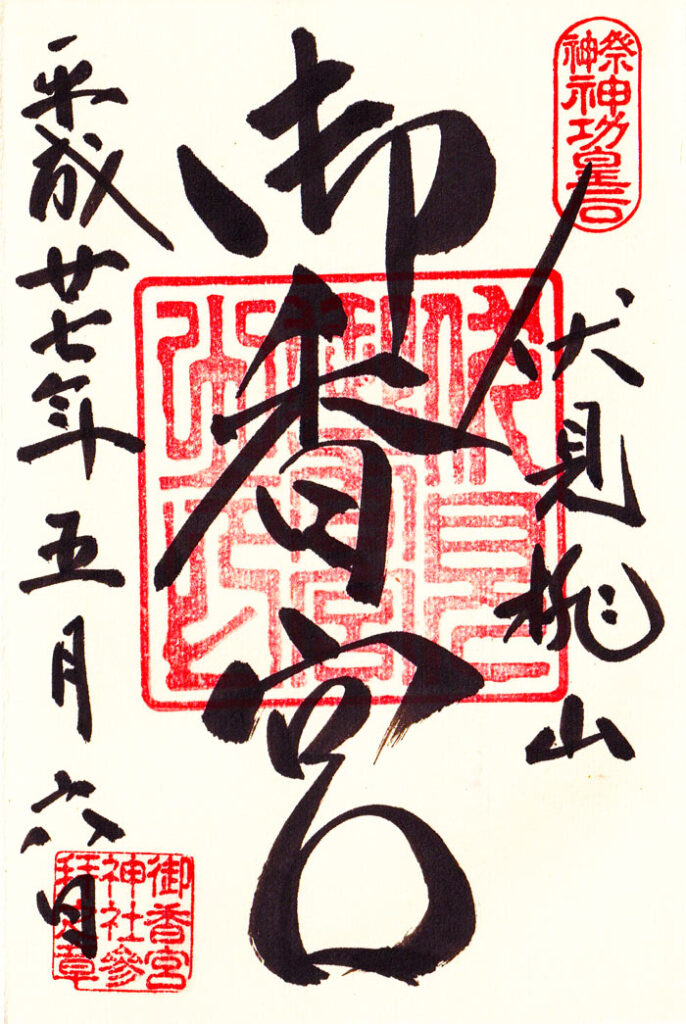 祭神
神功皇后
伏見桃山
御香宮
平成廿七年五月六日
御香宮
神社參
拜章